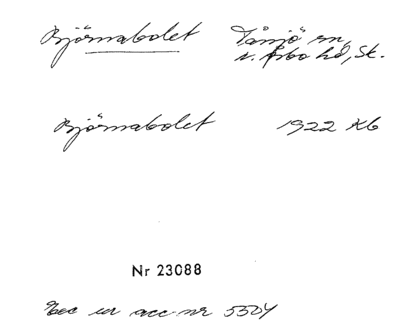 Björnabolet Tåssjö sn,
n. Åsbo hd, Sk.
Björnabolet 1922 Kb
Nr 23088
Exc ur acc. nr 5304